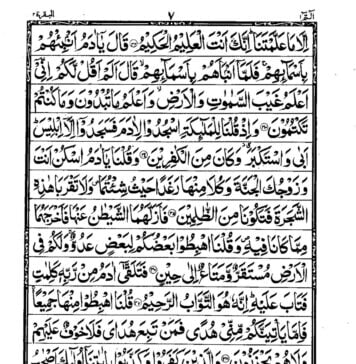 البقرة ٢
٧
الٓمّٓ ١
اِلَّا مَا عَلَّمْتَنَا اِنَّكَ اَنْتَ الْعَلِيْمُ الْحَكِيْمُ قَالَ يٰاٰدَمُ اَنْۢبِئْهُمْ
بِاَسْمَآئِهِمْ فَلَمَّآ اَنْۢبَاَهُمْ بِاَسْمَآئِهِمْ قَالَ اَلَمْ اَقُلْ لَّكُمْ اِنِّيْٓ
اَعْلَمُ غَيْبَ السَّمٰوٰتِ وَالْاَرْضِ وَاَعْلَمُ مَا تُبْدُوْنَ وَمَا كُنْتُمْ
تَكْتُمُوْنَ وَاِذْ قُلْنَا لِلْمَلٰٓئِكَةِ اسْجُدُوْا لِاٰدَمَ فَسَجَدُوْٓا اِلَّآ اِبْلِيْسَ
اَبٰى وَاسْتَكْبَرَ وَكَانَ مِنَ الْكٰفِرِيْنَ وَقُلْنَا يٰٓاٰدَمُ اسْكُنْ اَنْتَ
وَزَوْجُكَ الْجَنَّةَ وَكُلَا مِنْهَا رَغَدًا حَيْثُ شِئْتُمَا وَلَا تَقْرَبَا هٰذِهِ
الشَّجَرَةَ فَتَكُوْنَا مِنَ الظّٰلِمِيْنَ فَاَزَلَّهُمَا الشَّيْطٰنُ عَنْهَا فَاَخْرَجَهُمَا
مِمَّا كَانَا فِيْهِ وَقُلْنَا اهْبِطُوْا بَعْضُكُمْ لِبَعْضٍ عَدُوٌّ وَلَكُمْ فِي
الْاَرْضِ مُسْتَقَرٌّ وَّمَتَاعٌ اِلٰى حِيْنٍ فَتَلَقّٰٓى اٰدَمُ مِنْ رَّبِّهٖ كَلِمٰتٍ
فَتَابَ عَلَيْهِ اِنَّهٗ هُوَ التَّوَّابُ الرَّحِيْمُ قُلْنَا اهْبِطُوْا مِنْهَا جَمِيْعًا
فَاِمَّا يَاْتِيَنَّكُمْ مِّنِّيْ هُدًى فَمَنْ تَبِعَ هُدَايَ فَلَا خَوْفٌ عَلَيْهِمْ